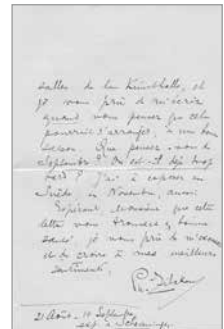 salles de la Kunsthalle, et
je vous prie de m'écrire
quand vous pensez que cela
pourrait s'arranger, à une bonne
saison. Que pensez-vous de
Septembre ? Ou est-il déjà trop
tard ? J'ai à exposer en
Suède en Novembre, aussi
Espérant, Monsieur que cette
lettre vous trouvera en bonne
santé, je vous prie de m'excuser
et de croire à mes meilleurs
sentiments.
21 Août - 14 Septembre